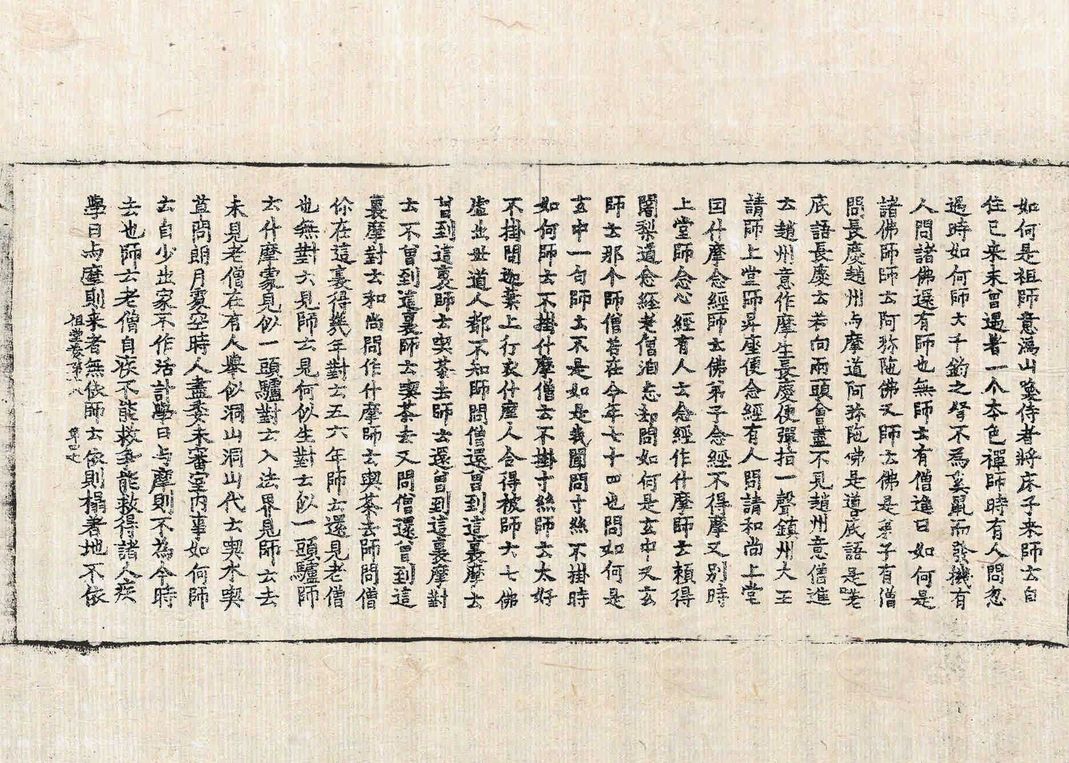 如何是祖師意溈山喚侍者將床子來師云自
住已來未曾遇著一个本色禪師時有人問忽
遇時如何師云千鈞之弩不為鼷鼠而發機有
人問諸佛還有師也無師云有僧進曰如何是
諸佛師師云阿弥陁佛又師云佛是弟子有僧
問長慶趙州与摩道阿弥陁佛是導底語是嗟
底語長慶云若向兩頭會盡不見趙州意僧進
云趙州意作摩生長慶便彈指一聲鎮州大王
請師上堂師昇座便念經有人問請和尚上堂
因什摩念經師云佛弟子念經不得摩又別時
上堂師念心經有人云念經作什摩師云賴得
闍梨道念經老僧洎忘却問如何是玄中又玄
師云那个師僧若在今年七十四也問如何是
玄中一句師云不是如是我聞問寸絲不掛時
如何師云不掛什摩僧云不掛寸絲師云太好
不掛問迦葉上行衣什摩人合得被師云七佛
虛出世道人都不知師問僧還曾到這裏摩云
曾到這裏師云喫茶去師云還曾到這裏摩對
云不曾到這裏師云喫茶去又問僧還曾到這
裏摩對云和尚問作什摩師云喫茶去師問僧
你在這裏得幾年對云五六年師云還見老僧
也無對云見師云見何似生對云似一頭驢師
云什摩處見似一頭驢對云入法界見師云去
未見老僧在有人舉似洞山洞山代云喫水喫
草問朗月處空時人盡委未審室內事如何師
云自少出家不作活計學曰与摩則不為今時
去也師云老僧自疾不能救爭能救得諸人疾
學曰与摩則來者無依師云依則榻著地不依
祖堂卷第十八